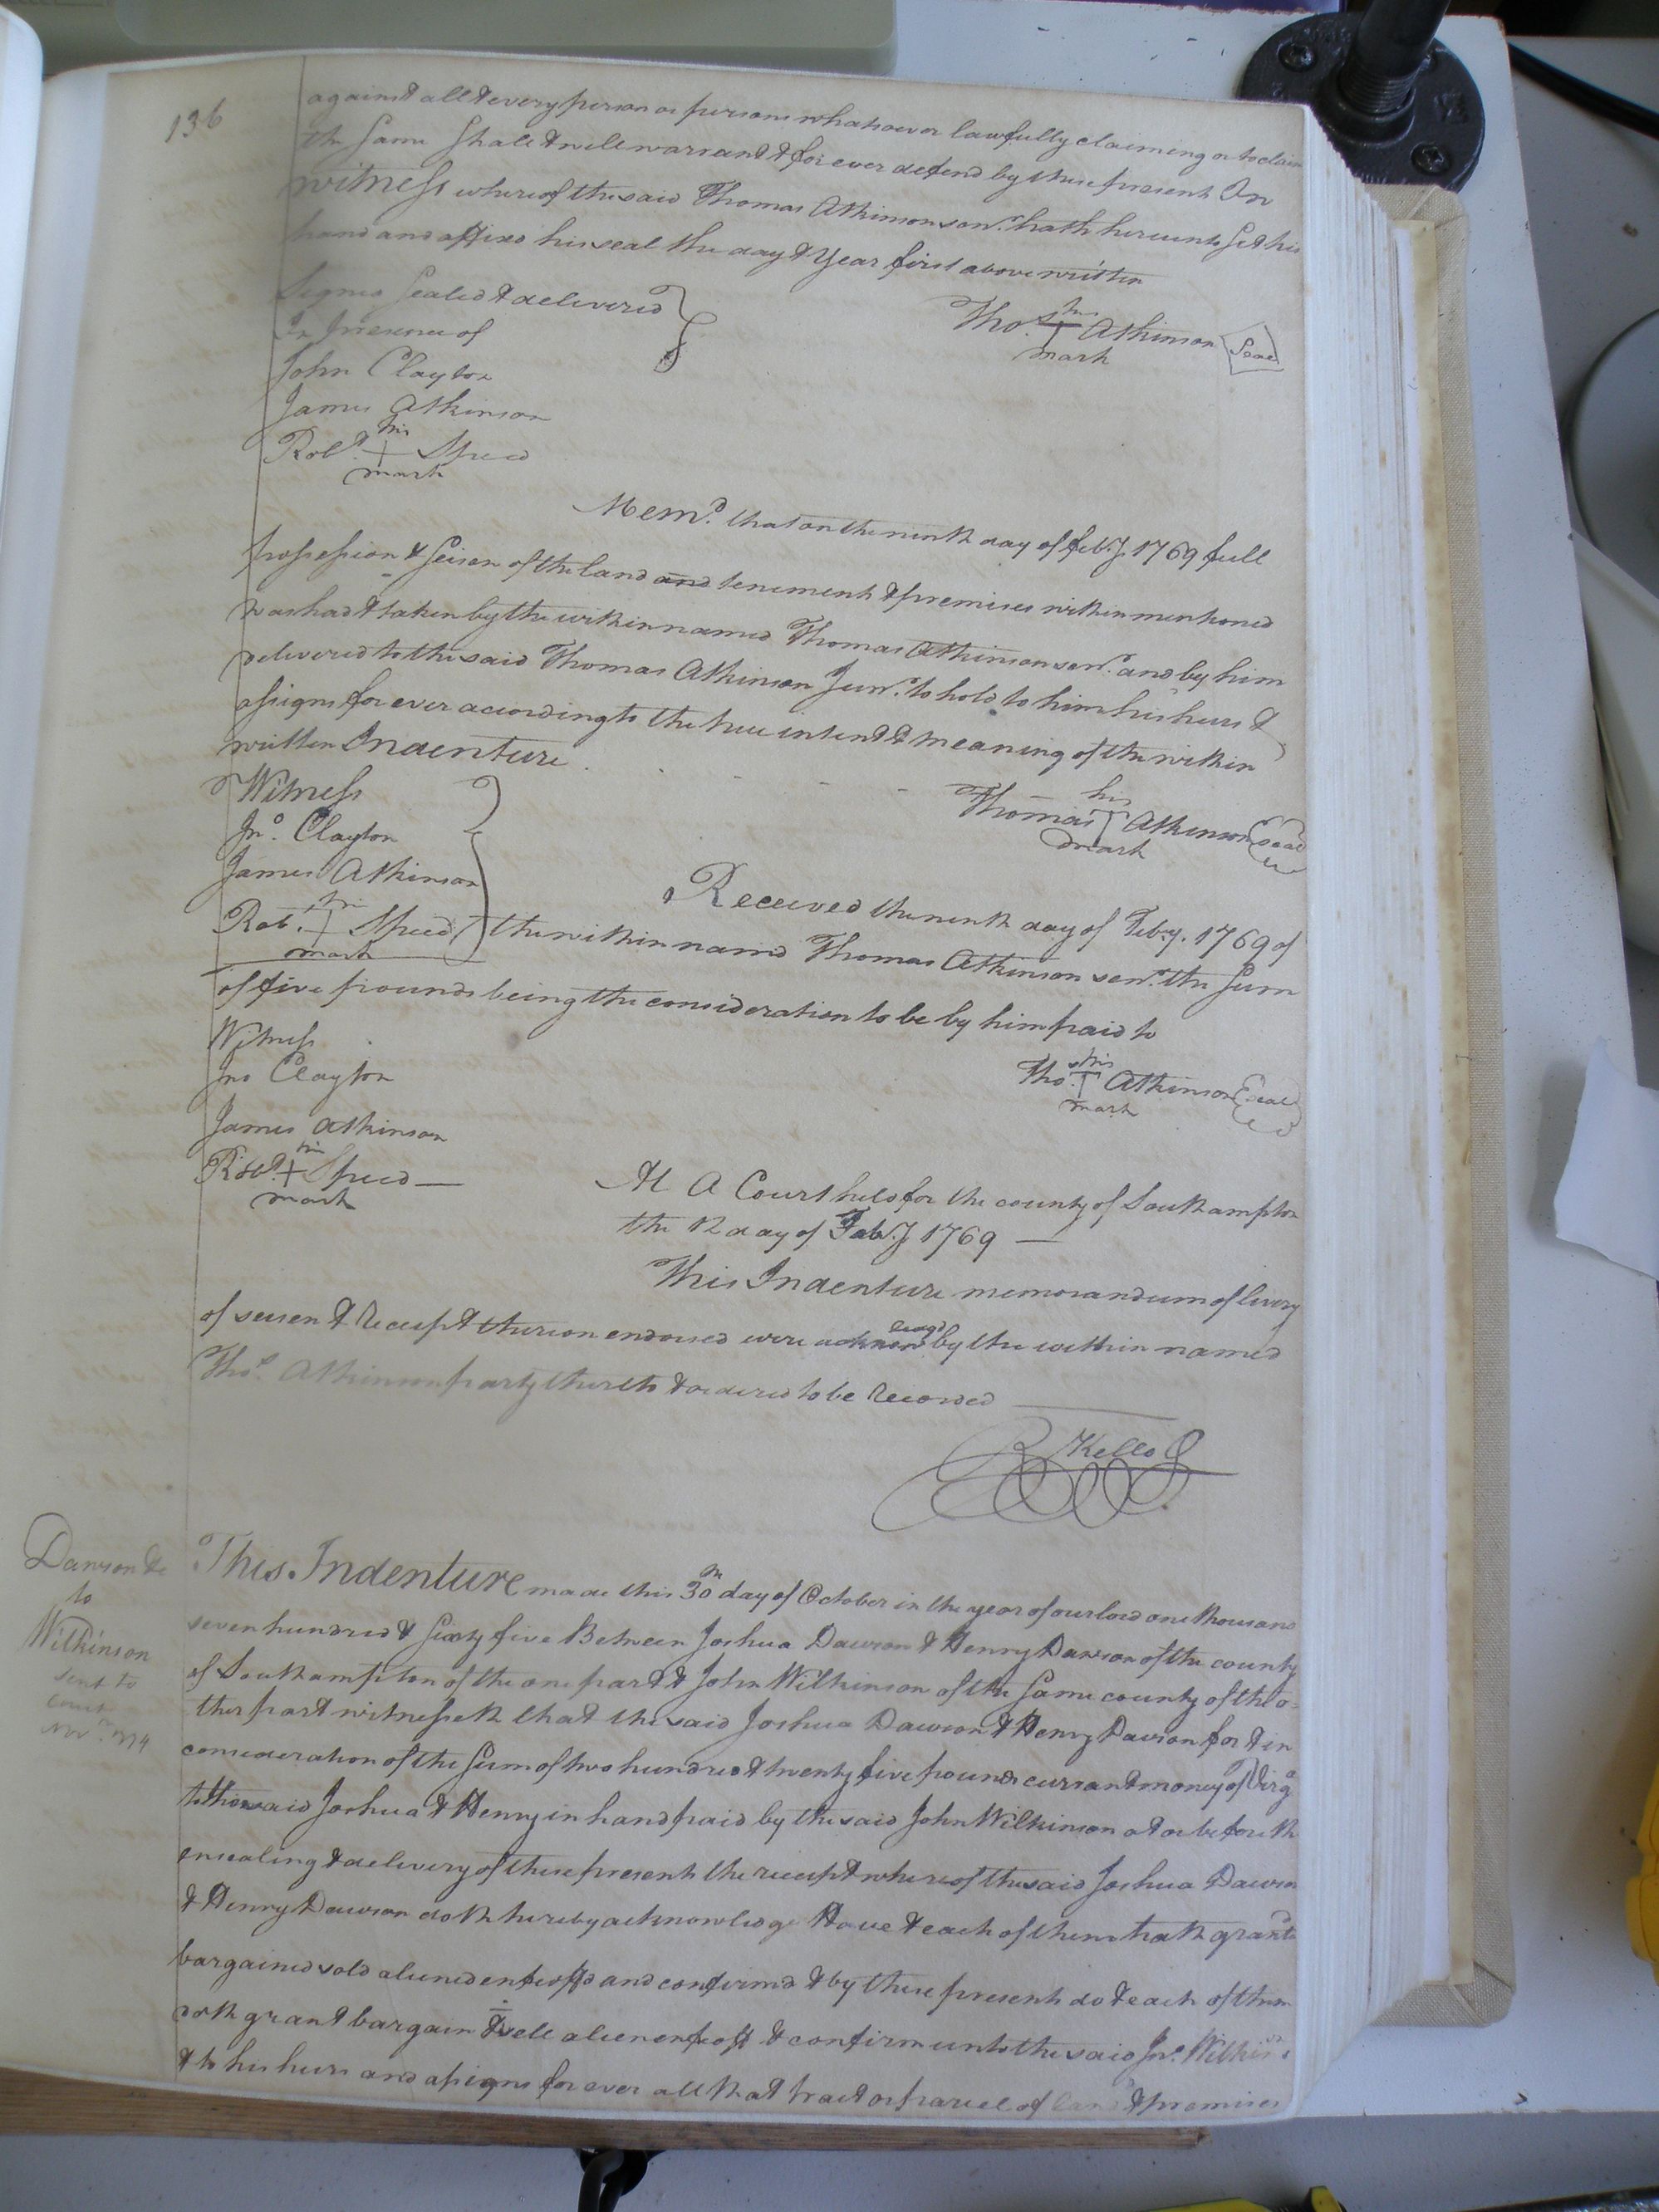 136
against all & every person or persons whatsoever lawfully claiming or to claim
the same shall & will warrant & for ever defend by these present In
witness whereof the said Thomas Atkinson senr. hath hereunto set his
hand and affixed his seal the day & year first above written
Signed sealed & delivered
In presence of
Thos. his T mark Atkinson Seal
John Clayton
James Atkinson
Robt. his + mark Speed
Memd. that on the ninth day of feb.y 1769 full
possession & seisen of the land and tenement & premises within mentioned
was had & taken by the within named Thomas Atkinson senr. and by him
delivered to the said Thomas Atkinson Junr. to hold to him his heirs &
assigns for ever according to the true intent & meaning of the within
written Indenture.
Thomas his T mark Atkinson Seal
Witness
Jno. Clayton
James Atkinson
Rob. his + mark Speed
Received the ninth day of Feb.y. 1769 of
the within named Thomas Atkinson senr. the sum
of five pounds being the consideration to be by him paid to
Witness
Tho. his T mark Atkinson Seal
Jno Clayton
James Atkinson
Robt. his + mark Speed
At A Court held for the county of Southampton
the 12 day of Feb.y 1769
This Indenture memorandum of livery
of seisen & Receipt thereon endorsed were acknowledgd by the within named
Thos. Atkinson party thereto & ordered to be Recorded
R Kello
Dawson &c
to
Wilkinson
sent to
court
Novr. 1774
This Indenture made this 30th day of October in the year of our lord one thousand
seven hundred & sixty five Between Joshua Dawson & Henry Dawson of the county
of Southampton of the one part & John Wilkinson of the same county of the o-
ther part witnesseth that the said Joshua Dawson & Henry Dawson for & in
consideration of the sum of two hundred & twenty five pounds currant money of Virga
to the said Joshua & Henry in hand paid by the said John Wilkinson at or before th
ensealing & delivery of these present the receipt whereof the said Joshua Dawson
& Henry Dawson doth hereby acknowledge Have & each of them hath grantd
bargained sold aliened enfeoffd and confirmd & by these present do & each of them
doth grant bargain & sell alien enfeoff & confirm unto the said Jno. Wilkins
& to his heirs and assigns for ever all that tract or parcel of land & premises